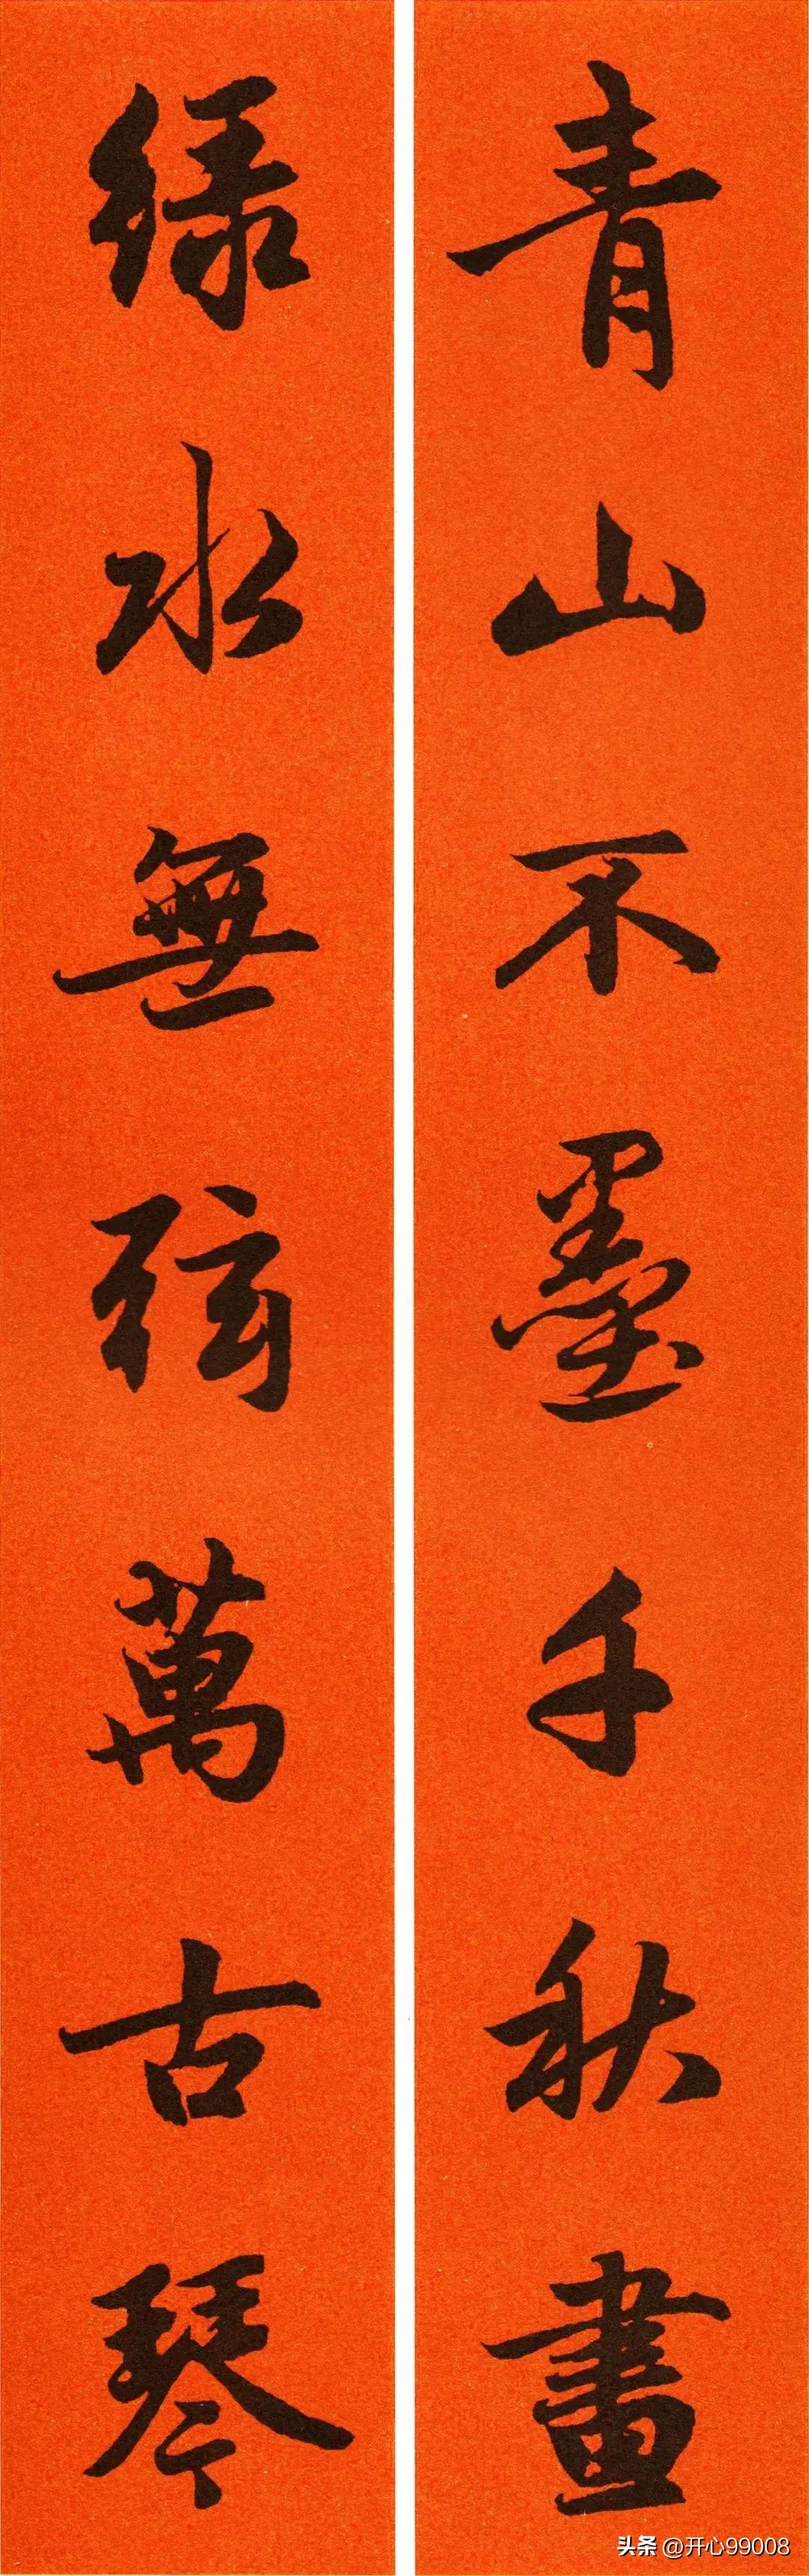 青山不墨千秋畫
绿水無弦萬古琴
头条 @开心99008